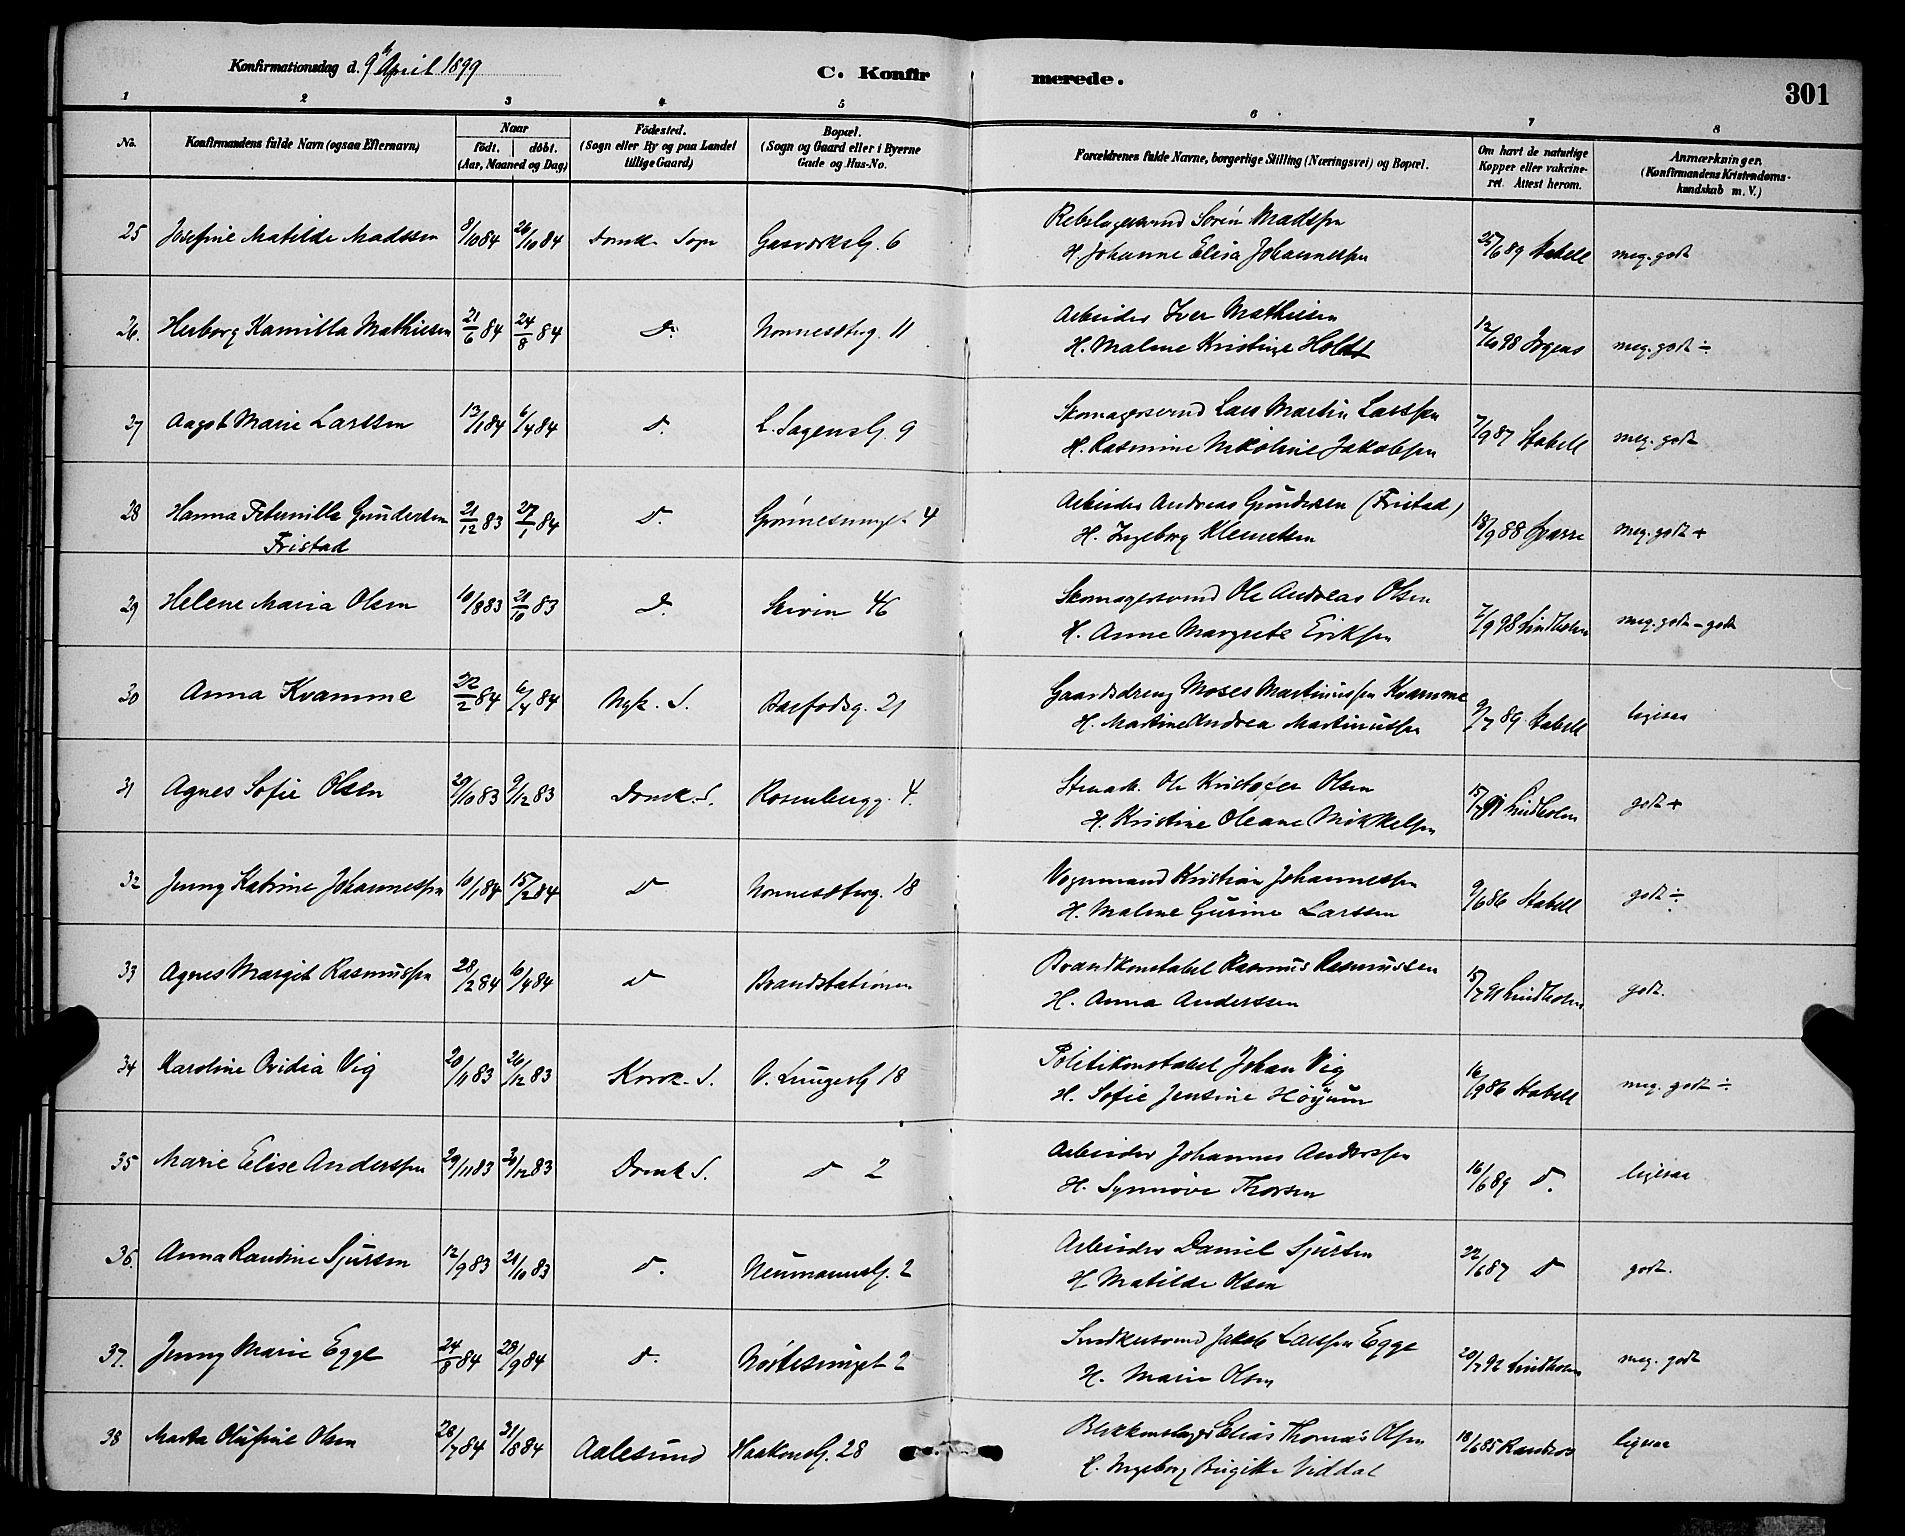 Konfirmationsdag d. 9 April 1899
C. Konfirmerede.
301
1 2 3 4 5 6 7 8
No. Konfirmandens fulde Navn (ogsaa Efternavn) Naar födt. döbt. (Aar, Maaned og Dag) Födested. (Sogn eller By og paa Landet tillige Gaard) Bopæl. (Sogn og Gaard eller i Byerne Gade og Hus-No. Forældrenes fulde Navne, borgerlige Stilling (Næringsvei) og Bopæl. Om havt de naturlige Kopper eller vakcineret. Attest herom. Anmærkninger. (Konfirmandens Kristendomskundskab m. V.)
25 Josefine Matilde Madssen 8/10 84 26/10 84 Domk. Sogn Gasværksg. 6 Rebslagersvend Sørén Madssen
H. Johanne Elisa Johannessen 25/6 89 Stabell meg. godt
26. Herborg Kamilla Mathissen 21/6 84 24/8 84 D. Nonnesetterg. 11 Arbeider Iver Mathissen
H. Malene Kristine Holdt 12/6 98 meg. godt ÷
27 Aagot Marie Larssen 13/1 84 6/4 84 D. L. Sagensg. 9 Skomagersvend Lars Martin Larssen
H. Rasmine Nikoline Jakobsen 7/9 87 Stabell meg. godt
28 Hanna Peternille Gundersen
Fristad 21/12 83 27/1 84 D. 4 Arbeider Andreas Gundersen (Fristad)
H. Ingeborg Klemetsen 18/9 88 meg. godt +
29 Helene Maria Olsen 10/8 83 21/10 83 D. Skivin 46 Skomagersvend Ole Andreas Olsen
H. Anne Margrete Eriksen 7/9 98 Lindholm meg. godt - godt
30 Anna Kvamme 22/2 84 6/4 84 Nyk. S. Barfodsg. 21 Gaardsdreng Moses Martinussen Kvamme
H. Martine Andrea Martinussen 9/7 89 Stabell ligesaa
31 Agnes Sofie Olsen 20/10 83 9/12 83 Domk. S. Rosenbergg. 4. Ole Kristofer Olsen
H. Kristine Oleane Mikkelsen 15/7 91 Lindholm godt +
32 Jenny Katrine Johannessen 10/1 84 15/2 84 D Nonnesetterg. 18 Vognmand Kristian Johannessen
H. Malene Gurine Larssen 9/6 86 Stabell godt ÷
33 Agnes Margit Rasmussen 28/2 84 6/4 84 D Brandstationen Brandkonstabel Rasmus Rasmussen
H. Anna Anderssen 15/7 91 Lindholm godt.
34 Karoline Ovidia Vig 20/11 83 26/12 83 Korsk. S. V. Lungeg 18 Politikonstabel Johan Vig
H. Sofie Jensine Höÿum 16/9 86 Stabell meg. godt ÷
35 Marie Elise Anderssen 29/11 83 30/12 83 Domk S. D 2 Arbeider Johannes Anderssen
H. Synnøve Thorsen 16/6 89 D. ligesaa
36. Anna Randine Sjursen 12/9 83 21/10 83 D. Neumannsg. 2 Arbeider Daniel Sjursen
H Matilde Olsen 22/6 87 D godt.
37. Jenny Marie Egge 24/8 84 28/9 84 D. 2 Snedkersvend Jakob Larssen Egge
H. Marie Olsen 20/7 92 Lindholm meg. godt
38 Marta Olufine Olsen 26/7 84 31/8 84 Aalesund Haakonsg. 28 Blikkenslager Elias Thomas Olsen
H. Ingeborg Birgitte Viddal 18/6 85 ligesaa